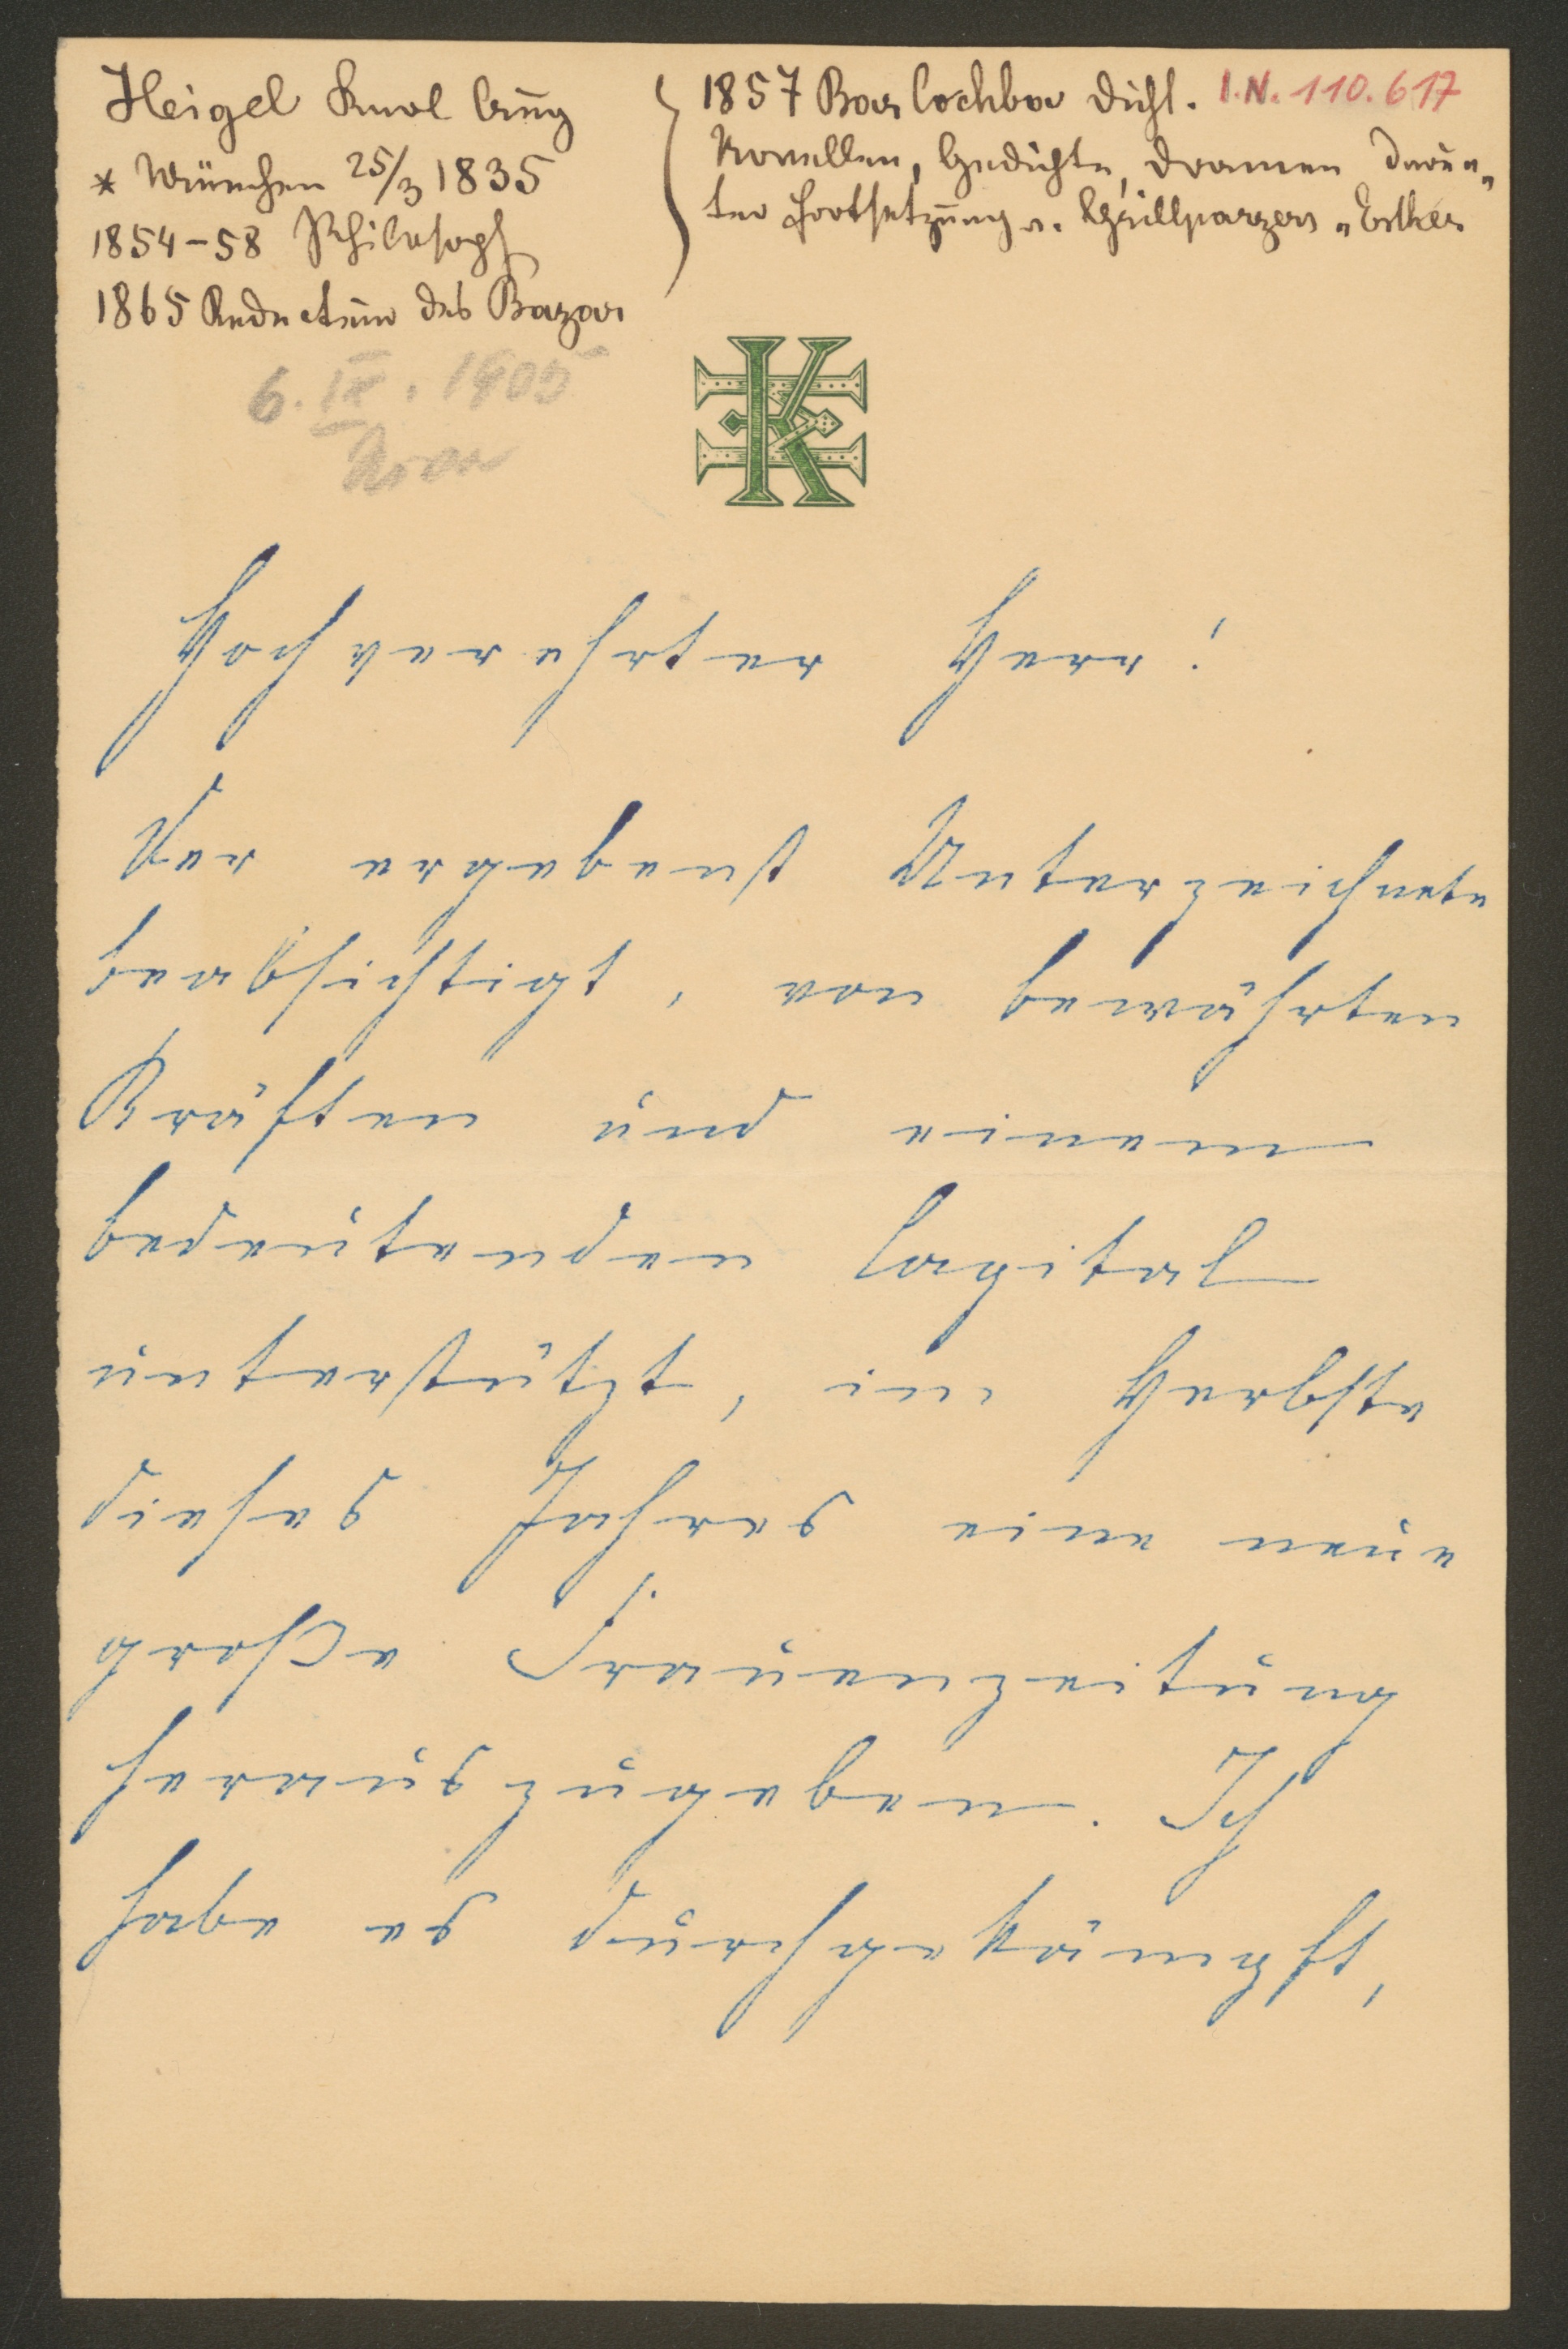 Heigel Karl Aug
* München 25/3 1835
1854-58 Philosoph
1865 Redacteur des Bazar
1857 Bar Cochba Dicht.
Novellen, Gedichte, Dramen darun„
ter Fortsetzung v. Grillparzers „Esther
I.N. 110.617
6. IX. 1905
K
Hochverehrter Herr!
Der ergebenst Unterzeichnete
beabsichtigt, von bewährten
Kräften und einem
bedeutenden Capital
unterstützt, im Herbste
dieses Jahres eine neue
große Frauenzeitung
herauszugeben. Ich
habe es durchgekämpft,